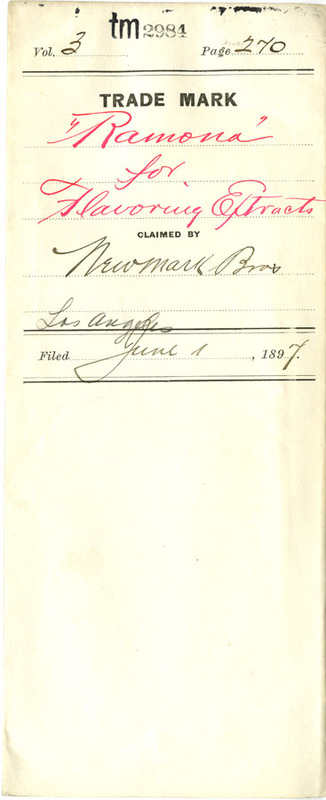 tm 2984
Vol. 3 Page 270
TRADE MARK
"Ramona"
for
Flavoring Extracts
CLAIMED BY
Newmark Bros
Los Angeles
Filed June 1, 1897.